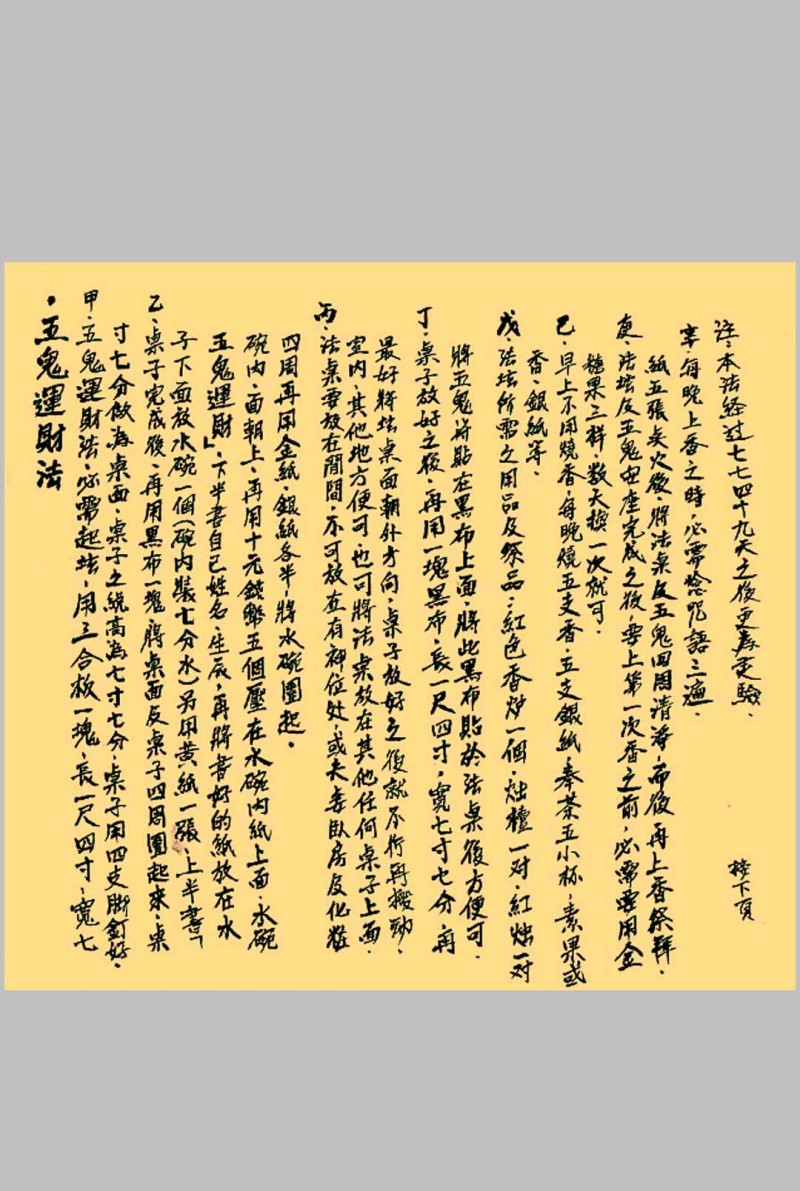 ・五鬼運財法
甲・五鬼運財法・必需起坛・用三合板一塊・長一尺四寸・寬七
寸七分做為桌面・桌子之總高為七寸七分・桌子用四支脚釘好・
乙・桌子完成後・再用黑布一塊・將桌面及桌子四周圍起來・桌
子下面放水碗一個(碗内裝七分水)另用黃紙一張・上半書「
五鬼運財」・下半書自己姓名・生辰・再將書好的紙放在水
碗内・面朝上・再用十元錢幣五個壓在水碗内紙上面・水碗
四周再用金紙・銀紙各半・將水碗圍起・
丙・法桌要放在閒間・不可放在有神位处・或夫妻臥房及化粧
室内・其他地方便可・也可將法桌放在其他任何桌子上面・
最好將坛桌面朝外方向・桌子放好之後就不行再搬動・
丁・桌子放好之後・再用一塊黑布・長一尺四寸・寬七寸七分・再
將五鬼符貼在黑布上面・將此黑布貼於法桌後方便可・
戊・法坛所需之用品及祭品:紅色香炉一個・烛檯一对・紅烛一对
香・銀紙等・
己・早上不用燒香・每晚燒五支香・五支銀紙・奉茶五小杯・素果或
糖果三样・数天換一次就可・
庚・法坛及五鬼安座完成之後・要上第一次香之前・必需要用金
紙五張点火後・將法桌及五鬼四周清淨・而後再上香祭拜・
辛・每晚上香之時・必需唸咒語三遍・
註・本法経过七七四十九天之後更為灵驗・
接下頁